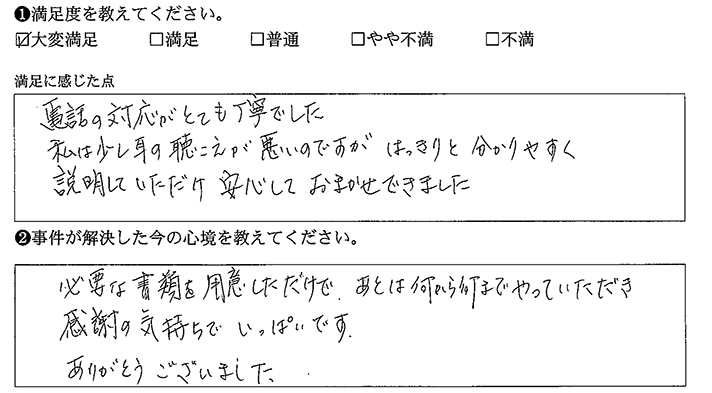 ❶満足度を教えてください。
☑大変満足 □満足 □普通 □やや不満 □不満
満足に感じた点
電話の対応がとても丁寧でした
私は少し耳の聴こえが悪いのですが はっきりと 分かりやすく
説明していただけ 安心して おまかせできました
❷事件が解決した今の心境を教えてください。
必要な書類を用意しただけで、あとは何から何までやっていただき
感謝の気持ちで いっぱいです.
ありがとう ございました、